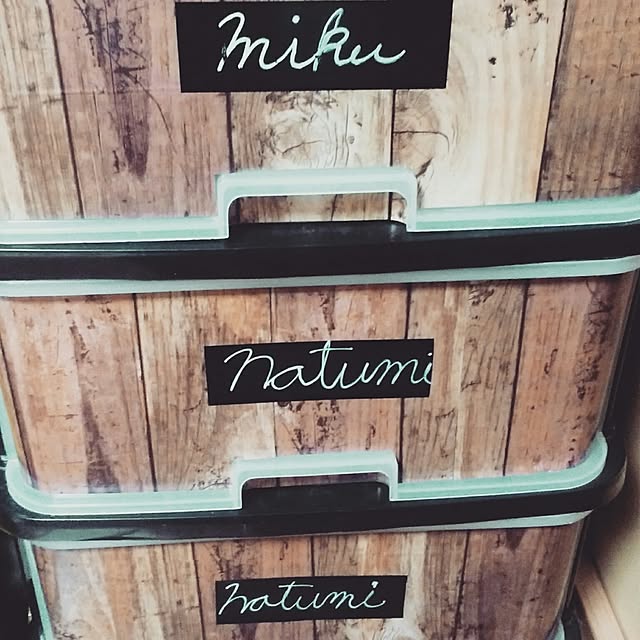 miku
natumi
natumi